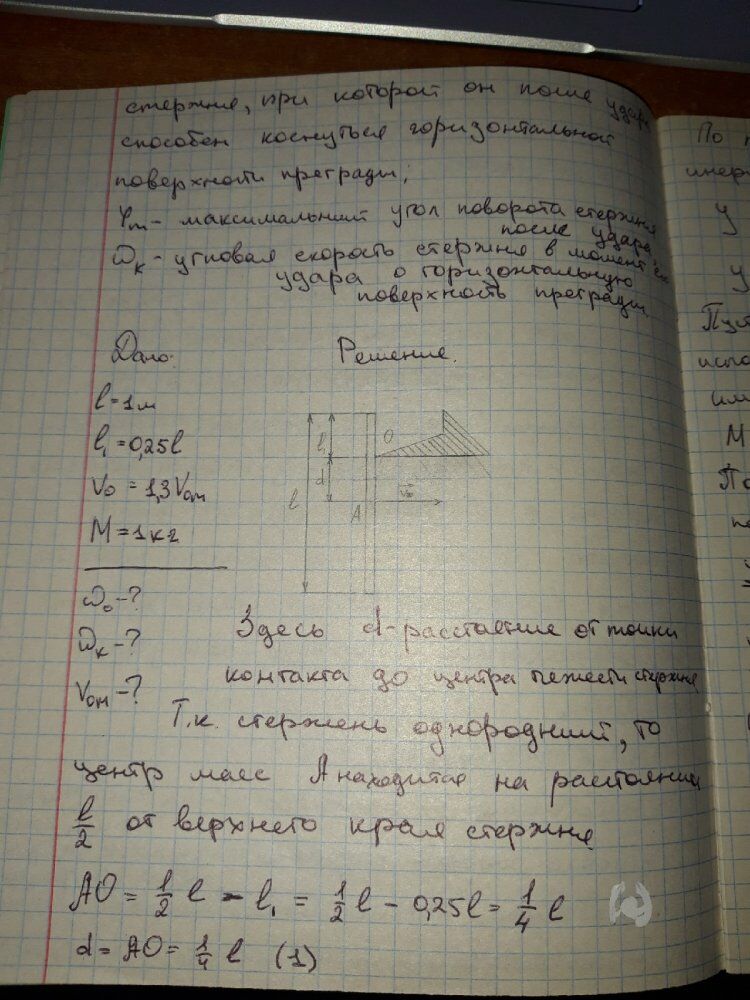 стержня, при которой он после удара
способен коснуться горизонтальной
поверхности преграды;
φm - максимальный угол поворота стержня
после удара
ωк - угловая скорость стержня в момент его
удара о горизонтальную
поверхность преграды.
Дано: Решение.
l=1м
l₁=0,25l
V₀ = 1,3V₀м
M=1кг
ω₀-?
ωк-?
V₀м-?
l
l₁
d
O
A
V₀
Здесь d-расстояние от точки
контакта до центра тяжести стержня
Т.к. стержень однородный, то
центр масс A находится на расстоянии
l/2 от верхнего края стержня.
AO = 1/2 l - l₁ = 1/2 l - 0,25l = 1/4 l
d = AO = 1/4 l (1)
По
инер
y
y
Пус
испо
им
M
По
по
=